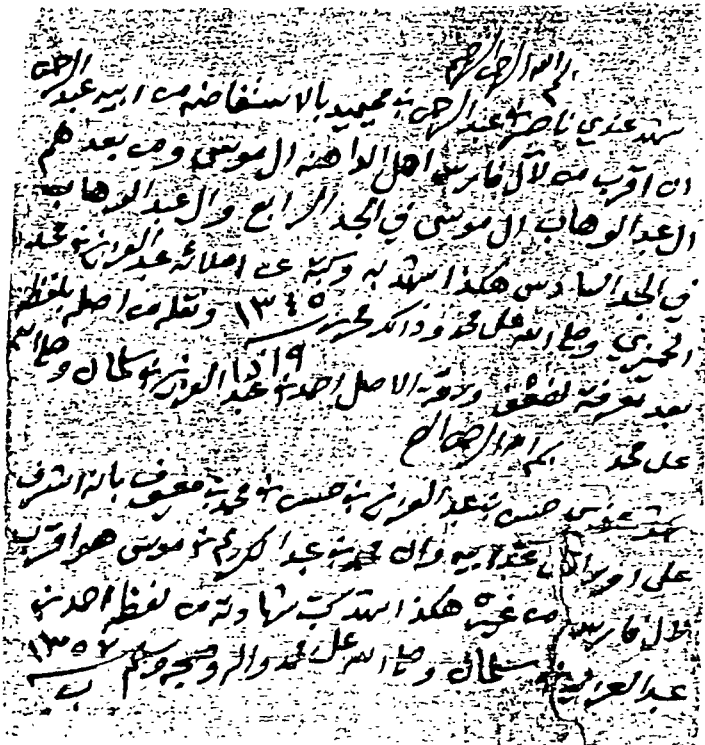 بسم الله الرحمن الرحيم
شهد عندي ناصر بن عبد الرحمن بن محيميد بالاستفاضه من ابيه عبد الرحمن
ان اقرب من لآل فارس اهل الداهنه ال موسى ومن بعدهم
ال عبد الوهاب ال موسى في الجد الرابع وال عبد الوهاب
في الجد السادس هكذا شهد به وكتبه عن املائه عبد العزيز بن محمد
وصلى الله على محمد وذالك محرم سنة ١٣٤٥ ونقله من اصله بلفظه
بعد معرفته الاصل احمد بن عبد العزيز بن سلمان وصلى الله
على محمد بسم الله الرحمن الرحيم
شهد عندي حسن بن عبد العزيز بن حسن بن محمد بن معيوف بانه اشرف
على اوراق عند ابيه وان محمد بن عبد الكريم بن موسى هو اقرب
لال فارس من غيره هكذا شهد كتب شهادته من لفظه احمد بن
عبد العزيز بن سلمان وصلى الله على محمد واله وصحبه وسلم ١٣٥٧